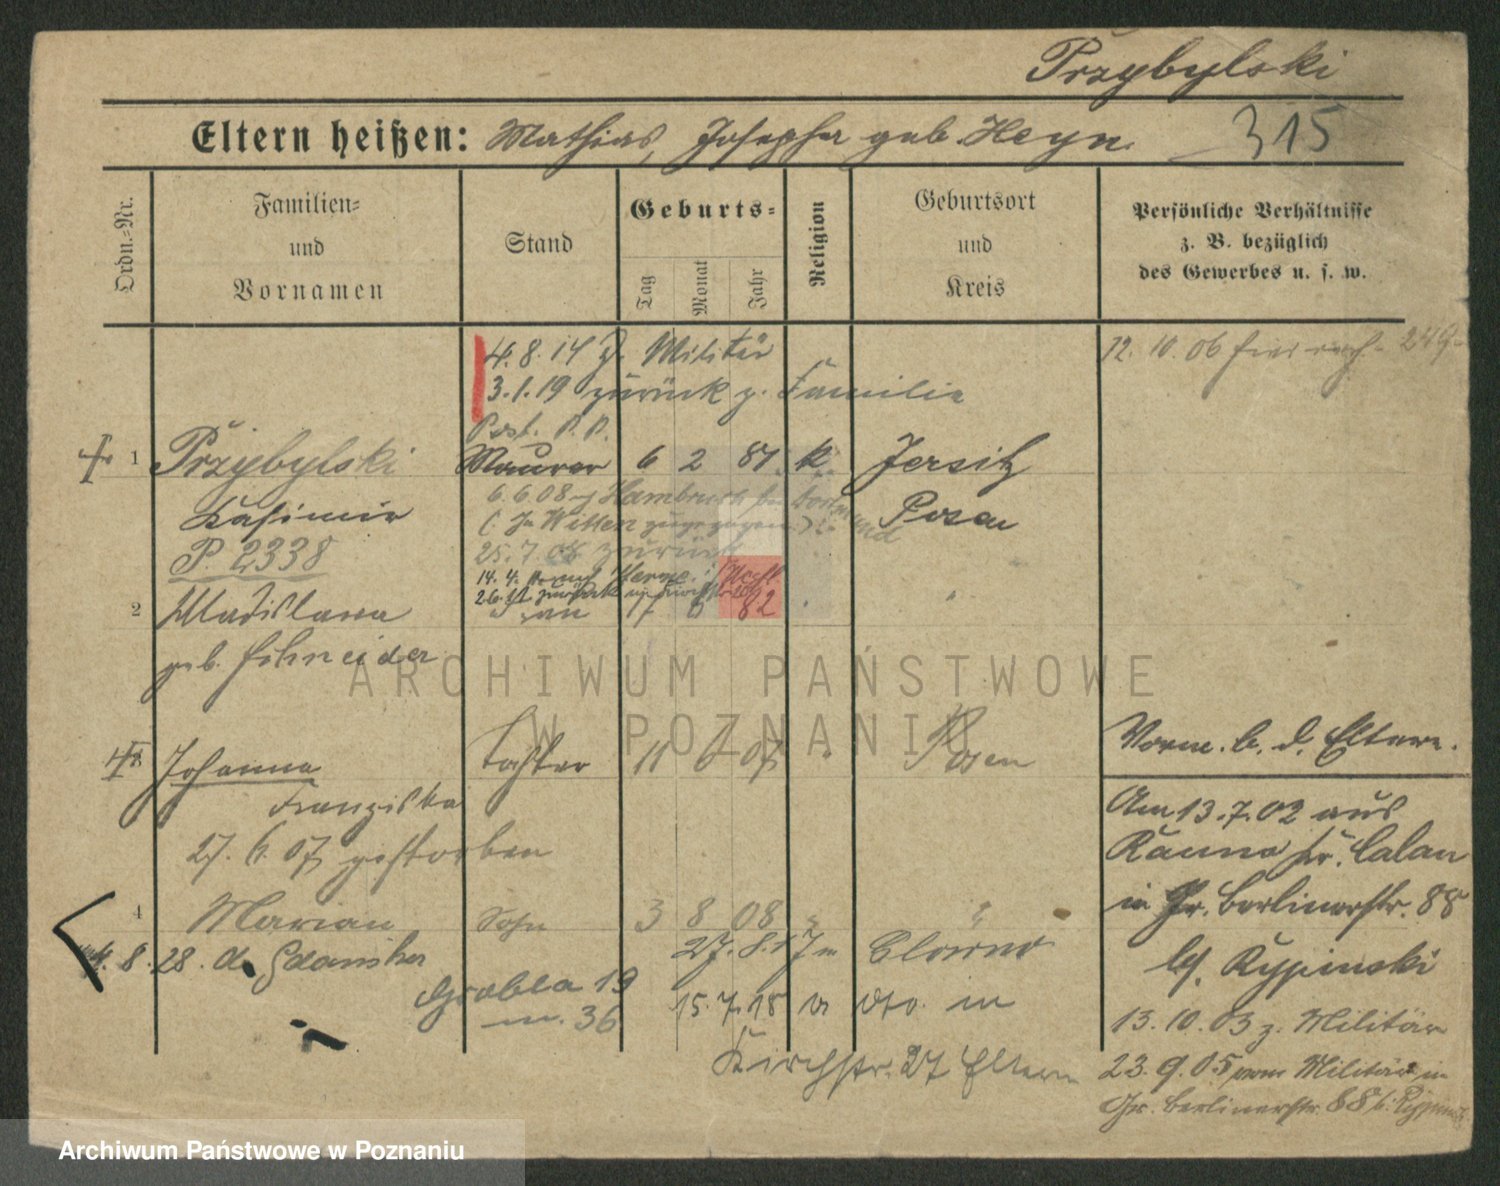 Przybylski
Eltern heißen: Mathias, Josepha geb. Heyn.
315
Ordn.-Nr.
Familien-
und
Vornamen
Stand
Geburts-
Tag
Monat
Jahr
Religion
Geburtsort
und
Kreis
Persönliche Verhältnisse
z. B. bezüglich
des Gewerbes u. s. w.
4. 8. 14 z. Militär
12. 10. 06
3. 1. 19 zurück z. Familie
1 Przybylski Maurer 6 2 81 k. Jersitz
Kasimir Posen
P. 2338
6. 6. 08
(In Witten zugezogen)
25. 7. 08 zurück
2 Wladislawa 6 82
geb. Schneider
3 Johanna Tochter 11 6 07 " Posen
Franziska
27. 6. 07 gestorben
4 Marian Sohn 3 8 08 "
4. 8. 28. d. Gdańska
27. 8. 17 in
Grobla 19
m. 36
15. 7. 18 dto. in
Kirchstr. 27 Eltern
Vorm. b. d. Eltern.
Am 13. 7. 02 aus
Ranno Kr. Calau
in Gr. Berlinerstr. 88
b/ Rypinski
13. 10. 03 z. Militär
23. 9. 05 vom Militär in
Gr. Berlinerstr. 88 b. Rypinski
ARCHIWUM PAŃSTWOWE
W POZNANIU
Archiwum Państwowe w Poznaniu